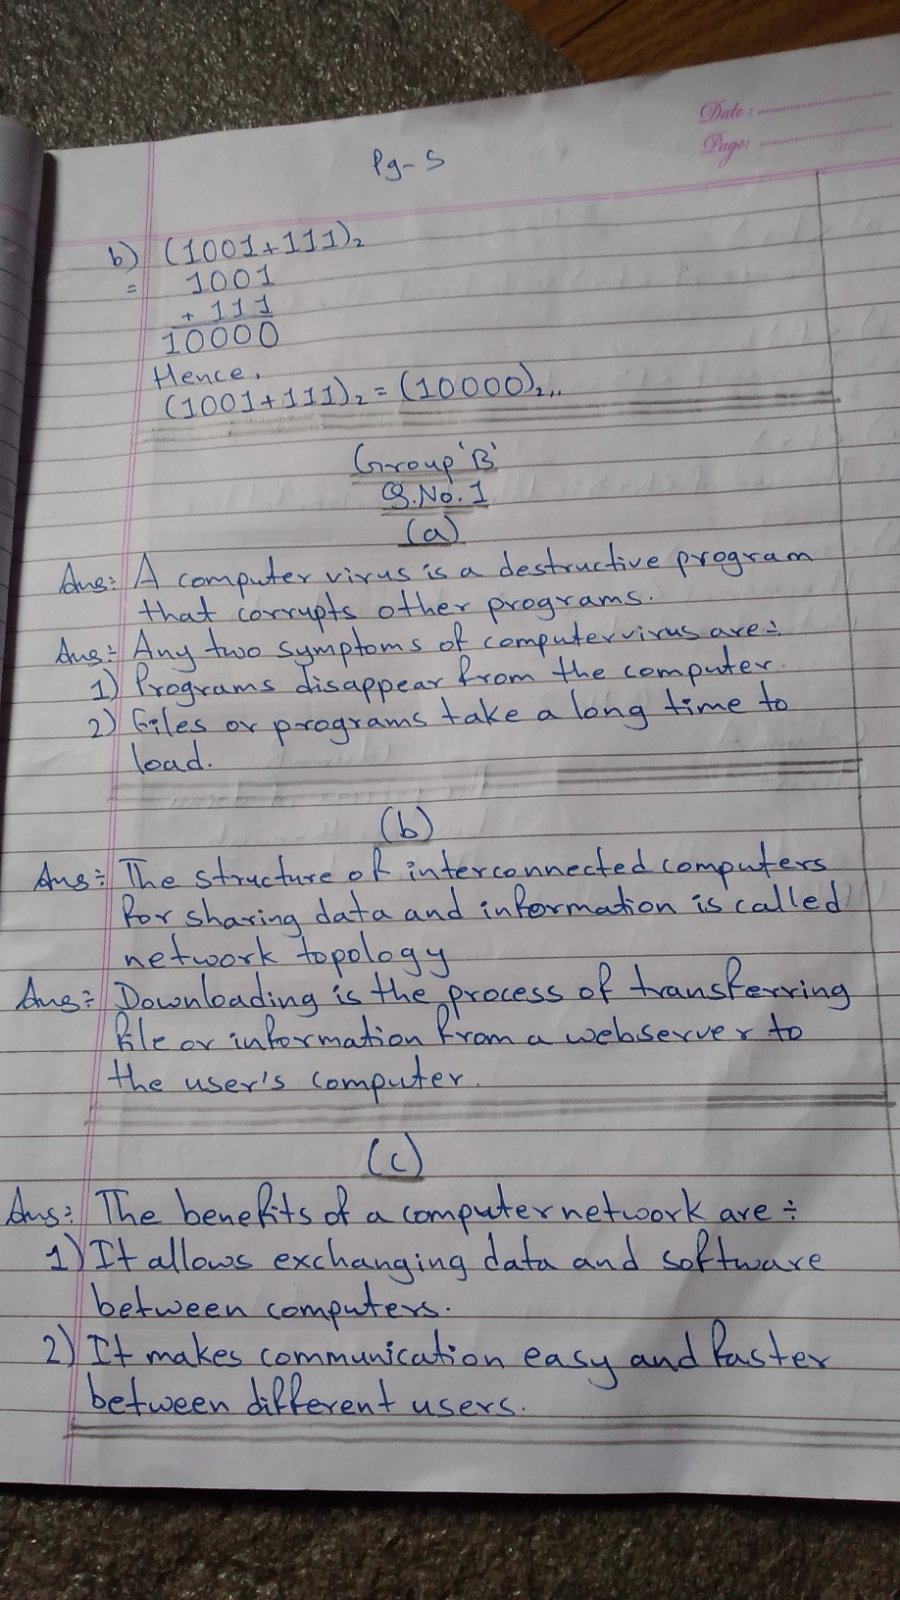 Date :
Page:
Pg-5
b) (1001+111)₂
= 1001
+ 111
10000
Hence,
(1001+111)₂ = (10000)₂,,
Group 'B'
Q.No. 1
(a)
Ans: A computer virus is a destructive program
that corrupts other programs.
Ans:- Any two symptoms of computer virus are:-
1) Programs disappear from the computer.
2) Files or programs take a long time to
load.
(b)
Ans:- The structure of interconnected computers
for sharing data and information is called
network topology
Ans:- Downloading is the process of transferring
file or information from a webserver to
the user's computer.
(c)
Ans: The benefits of a computer network are :-
1) It allows exchanging data and software
between computers.
2) It makes communication easy and faster
between different users.